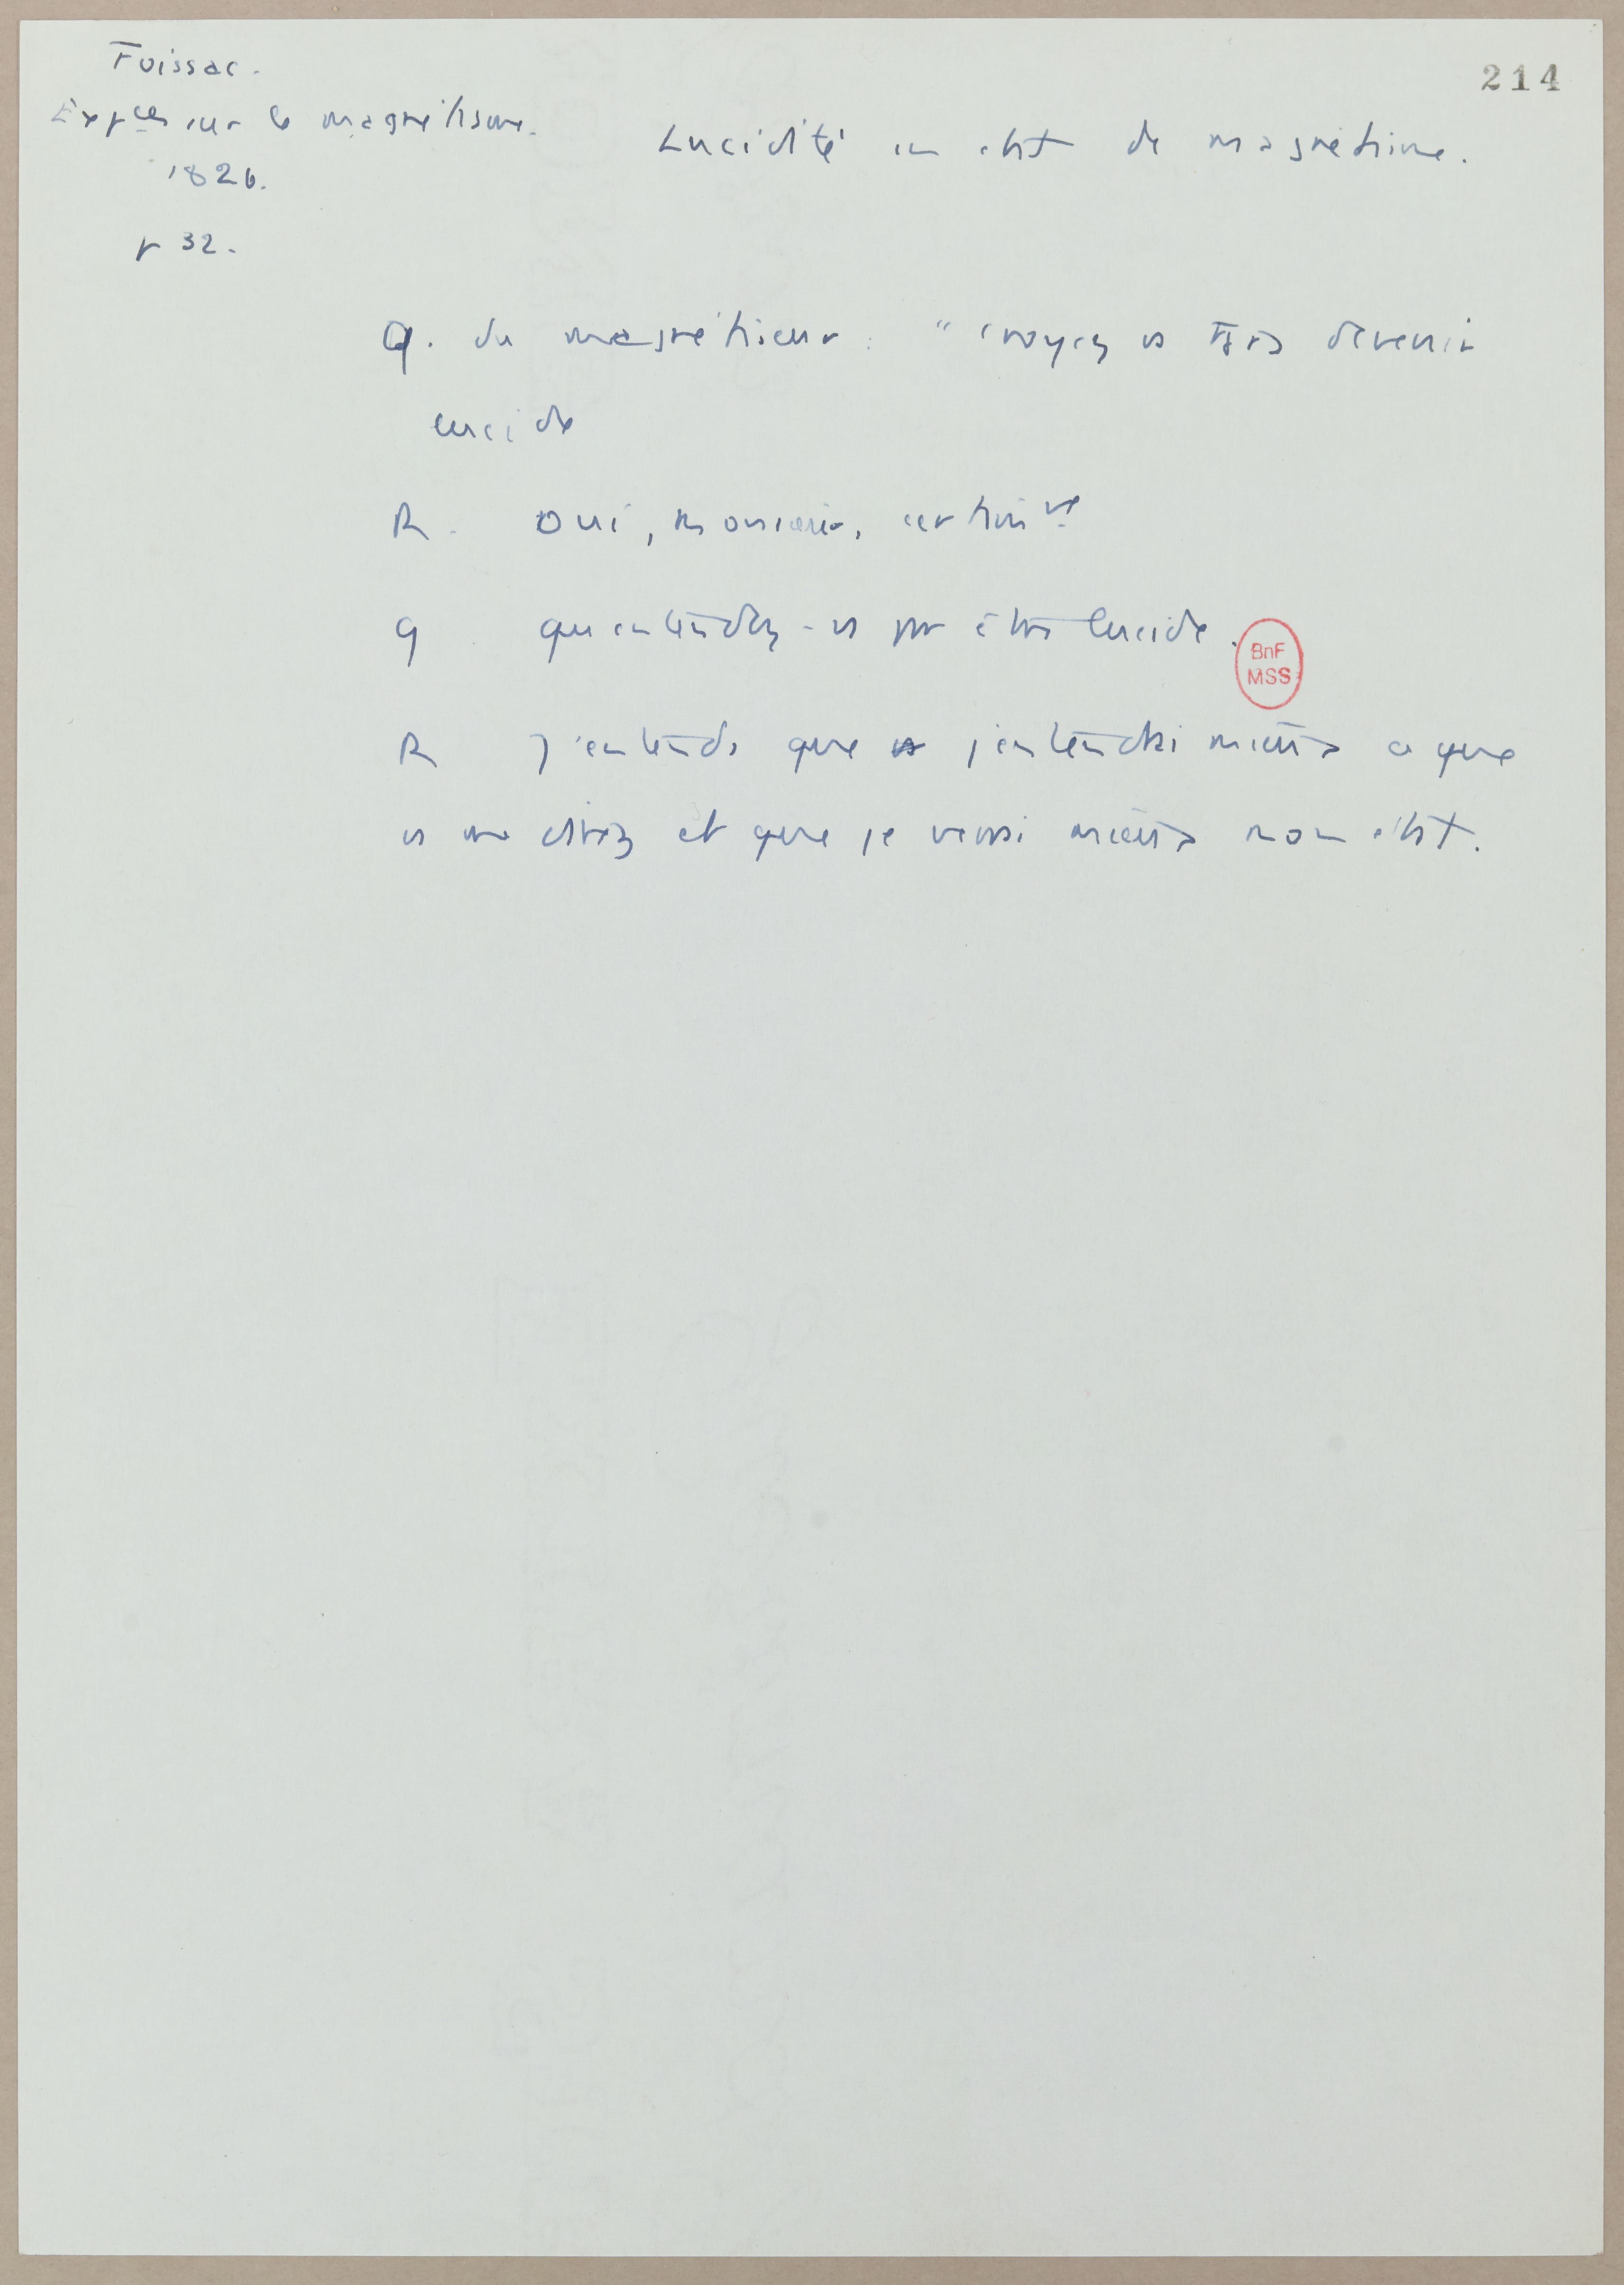 214
Foissac.
Exp^ces sur le magnétisme.
1826.
p 32.
Lucidité en état de magnétisme.
Q. du magnétiseur : "croyez vs tjrs devenir
lucide
R. Oui, monsieur, certain^nt
q qu'entendez-vs par être lucide.
R J'entends que j'entendrai mieux ce que
vs me direz et que je verrai mieux mon état.
BnF
MSS